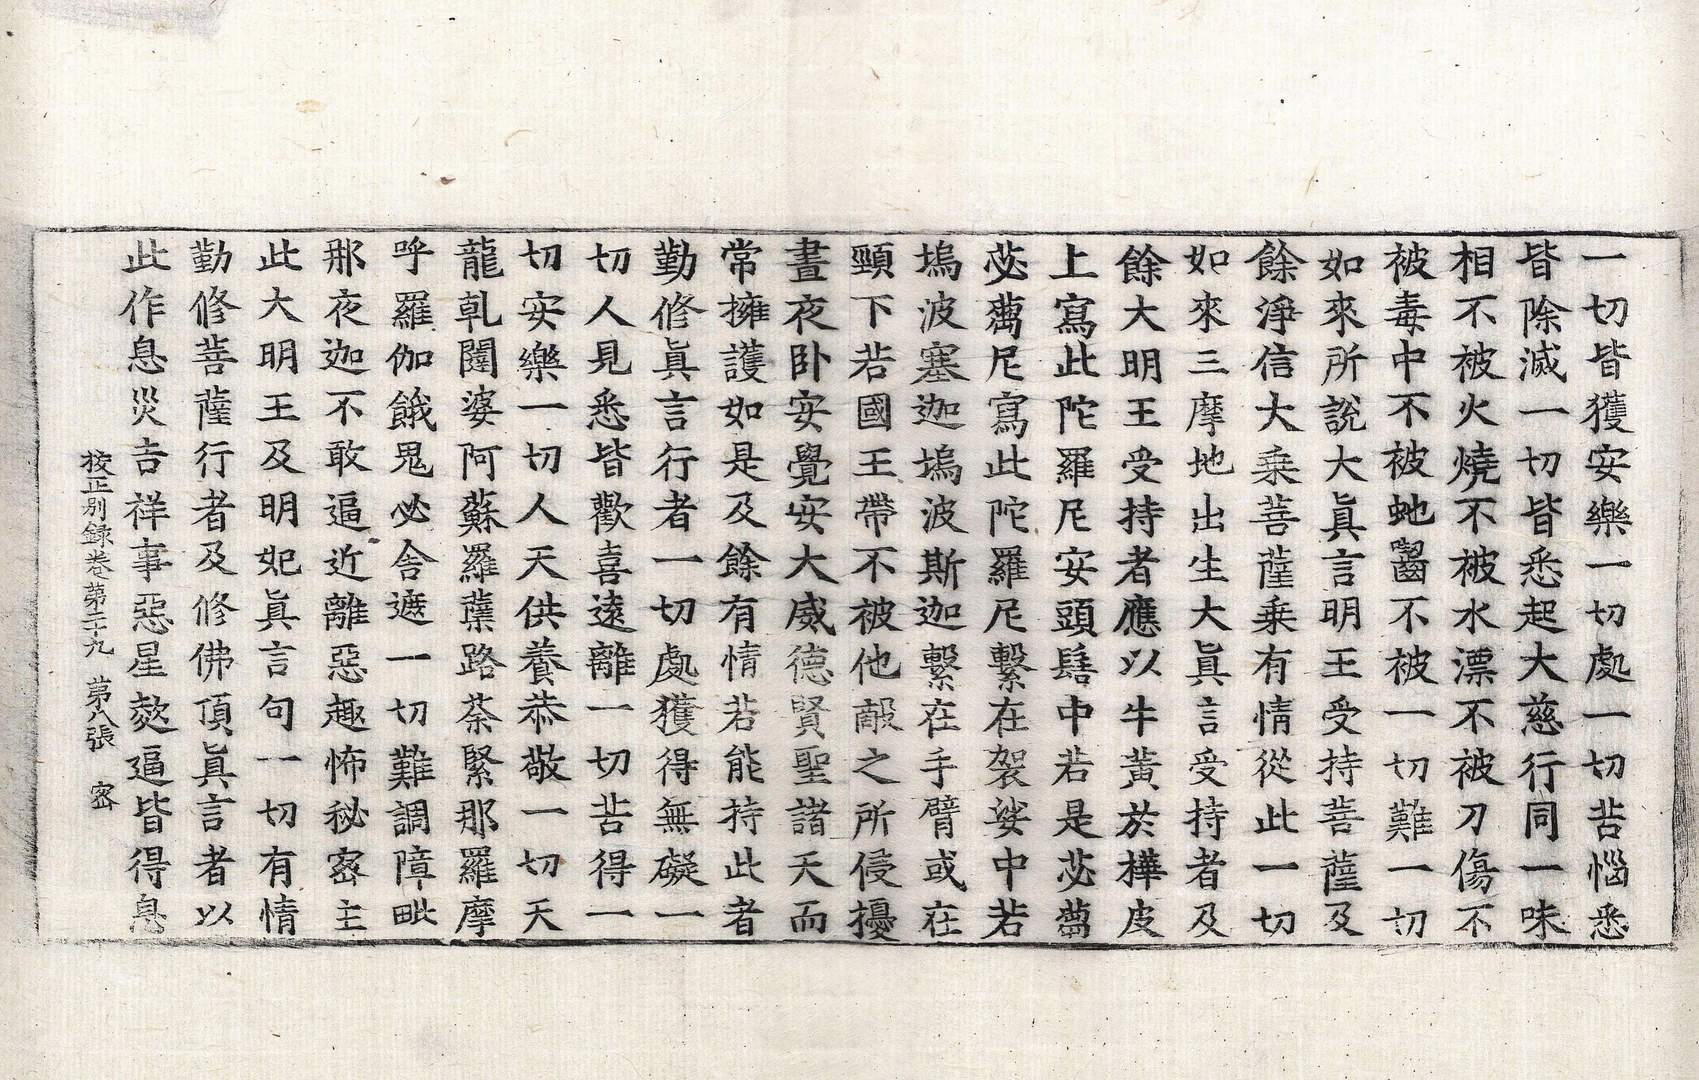 一切皆獲安樂一切處一切苦惱悉
皆除滅一切皆悉起大慈行同一味
相不被火燒不被水漂不被刀傷不
被毒中不被虵齧不被一切難一切
如來所說大眞言明王受持菩薩及
餘淨信大乘菩薩乘有情從此一切
如來三摩地出生大眞言受持者及
餘大明王受持者應以牛黃於樺皮
上寫此陀羅尼安頭髻中若是苾蒭
苾蒭尼寫此陀羅尼繫在袈裟中若
塢波塞迦塢波斯迦繫在手臂或在
頸下若國王帶不被他敵之所侵擾
晝夜卧安覺安大威德賢聖諸天而
常擁護如是及餘有情若能持此者
勤修眞言行者一切處獲得無礙一
切人見悉皆歡喜遠離一切苦得一
切安樂一切人天供養恭敬一切天
龍乹闥婆阿蘇羅蘖路荼緊那羅摩
呼羅伽餓鬼必舍遮一切難調障毗
那夜迦不敢逼近離惡趣怖秘密主
此大明王及明妃眞言句一切有情
勤修菩薩行者及修佛頂眞言者以
此作息災吉祥事惡星熒逼皆得息
挍正別録卷第二十九 第八張 密